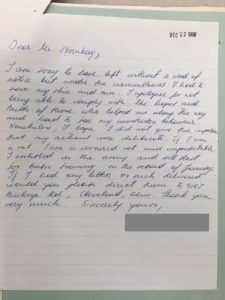 DEC 22 1968
Dear Mr. Nornberg,
I am sorry to have left without a word of
notice but under the circumstances I had to
save my skin and run. I apologize for not
being able to comply with the hopes and
faith of those who helped me along the way
and
Nonetheless, I hope I did not give the impression
that my actions were deliberate. If I am
a rat I am a cornered rat and unpredictable.
I enlisted in the army and will start
for basic training on the second of January.
If I had any letters or such delivered
would you please direct them to 9107
Buckeye Rd, Cleveland, Ohio. Thank you
very much. Sincerely yours,